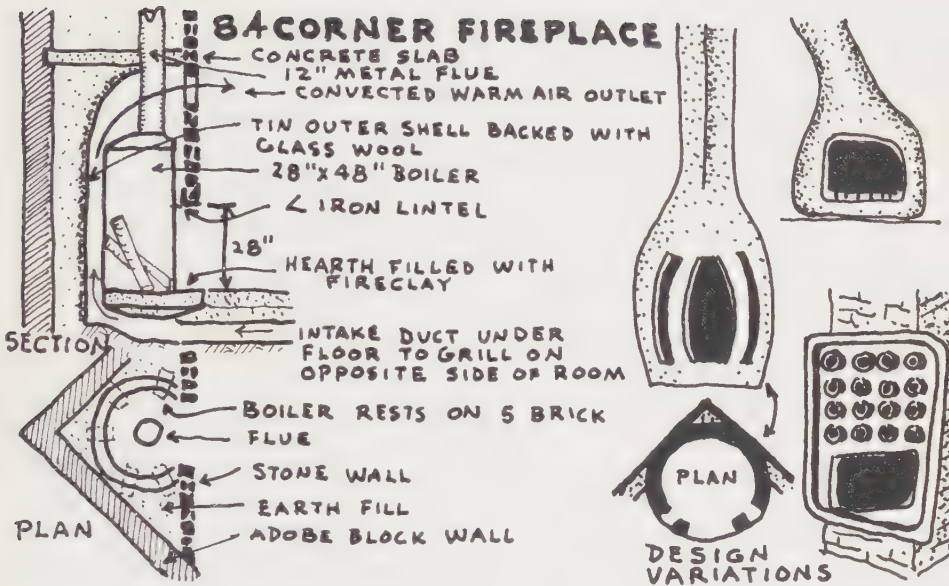 84 CORNER FIREPLACE
CONCRETE SLAB
12" METAL FLUE
CONVECTED WARM AIR OUTLET
TIN OUTER SHELL BACKED WITH
GLASS WOOL
28"X48" BOILER
∠ IRON LINTEL
28"
HEARTH FILLED WITH
FIRECLAY
SECTION
INTAKE DUCT UNDER
FLOOR TO GRILL ON
OPPOSITE SIDE OF ROOM
BOILER RESTS ON 5 BRICK
FLUE
STONE WALL
EARTH FILL
PLAN
ADOBE BLOCK WALL
PLAN
DESIGN
VARIATIONS